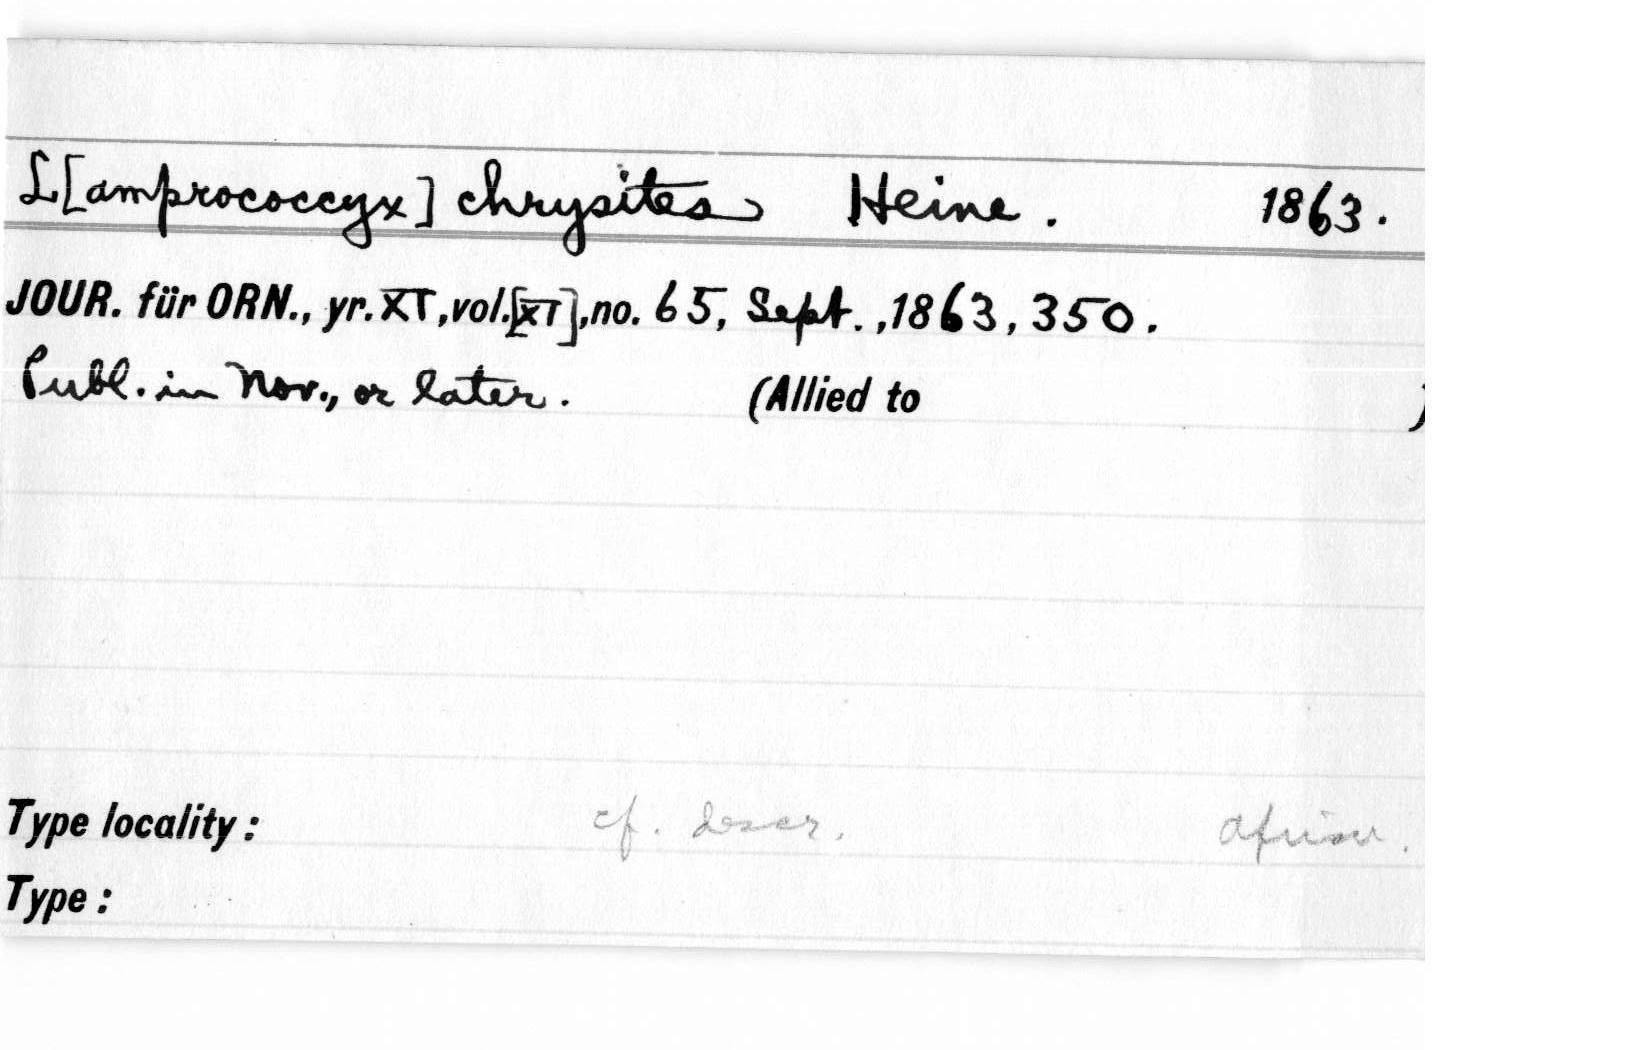 L[amprococcyx] chrysites Heine. 1863.
JOUR. für ORN., yr. XI, vol. [XI], no. 65, Sept., 1863, 350.
Publ. in Nov., or later. (Allied to )
Type locality: cf. descr. African.
Type: